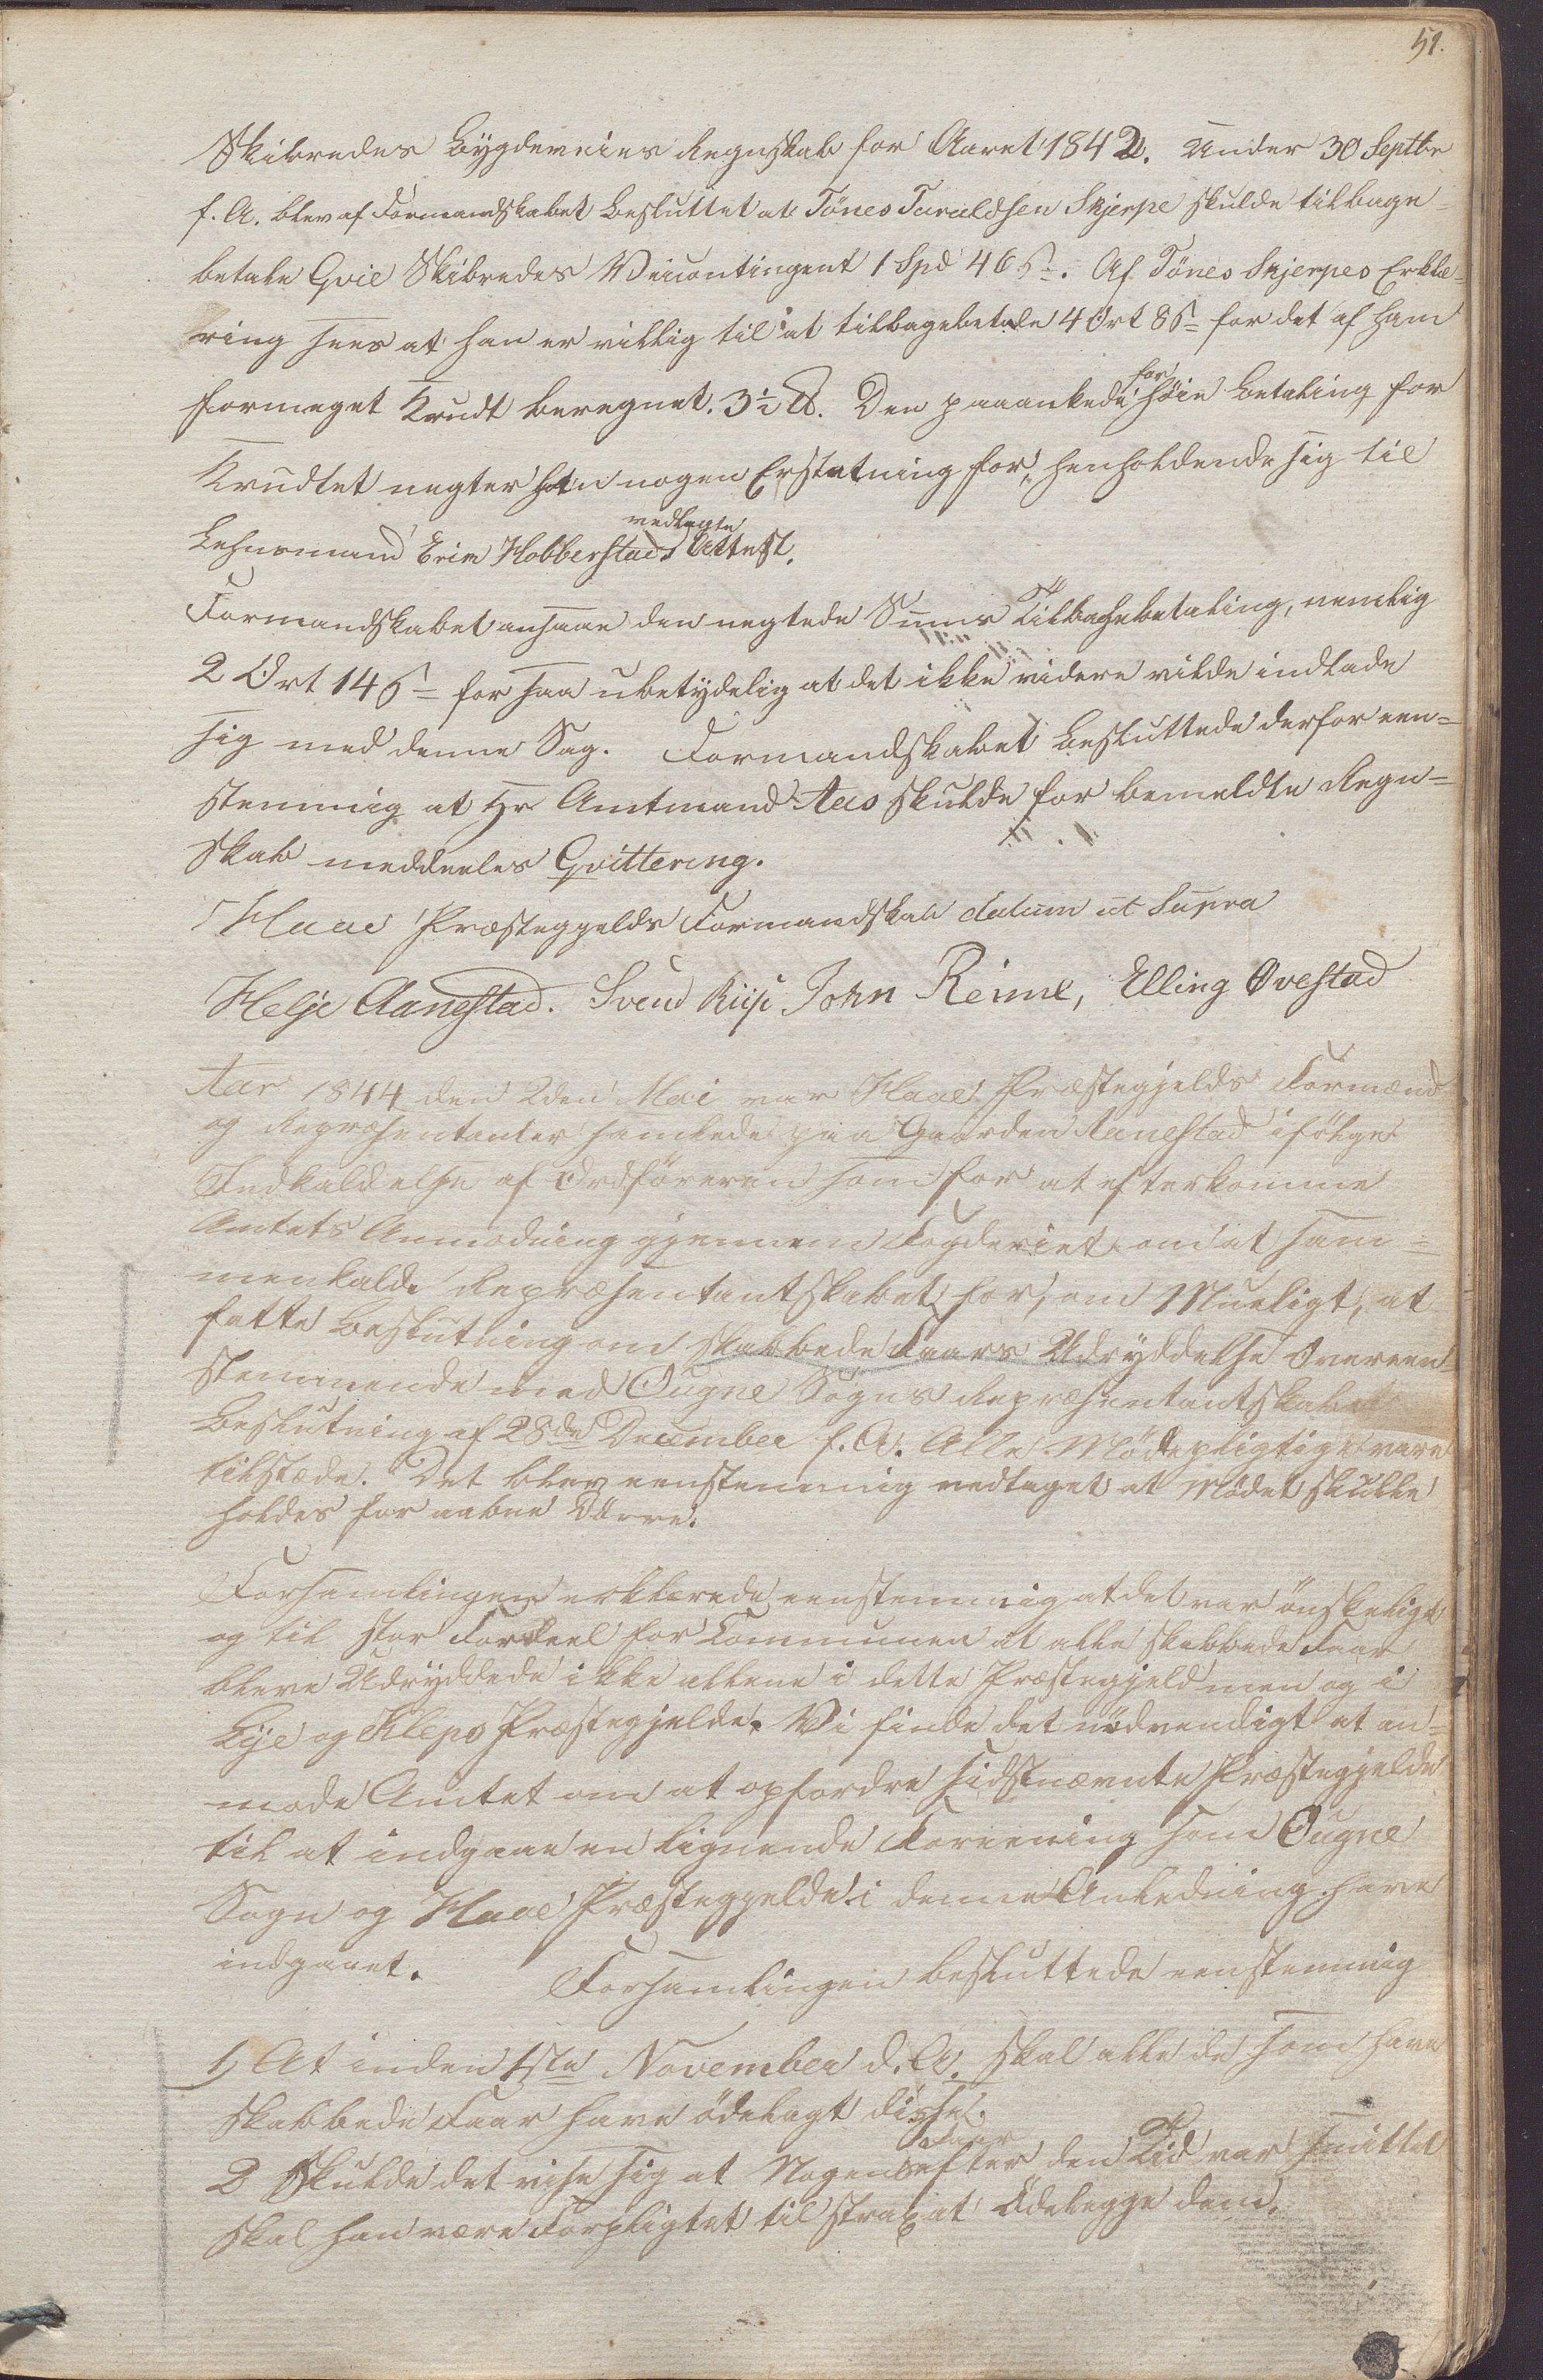 51.
Skibredes Bygdeveies Regnskab for Aaret 1842. Under 30 Septbr
f. A. blev af Formandskabet besluttet at Tönes Taraldsen Skjerpe skulde tilbage
betale Qvie Skibredes Veicontingent 1 Spd 46 s. Af Tönes Skjerpes Erklæ-
ring sees at han er villig til at tilbagebetale 4 Ort 8 s = for det af ham
formeget Krudt beregnet. 3½ ℔. Den paaankede for höie Betaling for
Krudtet negter han nogen Erstatning for, henholdende sig til
Lehnsmand Erim Hobberstads vedlagte Attest.
Formandskabet ansaae den negtede Sums Tilbagebetaling, nemlig
2 Ort 14 s = for saa ubetydelig at det ikke videre vilde indlade
sig med denne Sag. Formandskabet besluttede derfor een=
stemmig at Hr Amtmand Aas skulde for bemeldte Regn=
skab meddeeles Qvittering.
Haae Præstegjelds Formandskab datum ut Supra
Helje Aanestad. Svend Riis John Reime, Elling Ovestad
Aar 1844 den 2den Mai var Haae Præstegjelds Formænd
og Repræsentanter samlede paa Gaarden Aanestad ifölge
Indkaldelse af Ordföreren som for at efterkomme
Amtets Anmodning gjennem Fogderiet om at sam=
menkalde Repræsentantskabet for, om Mueligt, at
fatte Beslutning om skabbede Faars Udryddelse Overeen=
stemmende med Ougne Sogns Repræsentantskabet
Beslutning af 28de December f. A. Alle Mödepligtige vare
tilstæde. Det blev eenstemmig vedtaget at Mödet skulle
holdes for aabne Dörre.
Forsamlingen erklærede eenstemmig at det var önskeligt
og til stor Fordeel for Communen at alle skabbede Faar
bleve Udryddede ikke allene i dette Præstegjeld men og i
Lye og Kleps Præstegjelde. Vi finde det nödvendigt at an=
mode Amtet om at opfordre sidstnævnte Præstegjelde
til at indgaae en lignende Forening som Ougne
Sogn og Haae Præstegjelde i denne Anledning have
indgaaet. Forsamlingen besluttede eenstemmig
1, At inden 1ste November d. A. skal alle de som have
skabbede Faar have ödelagt disse.
2 Skulde det vise sig at Nogens Faar efter den Tid var smittet
skal han være Forpligtet til strax at Ödelegge dem,